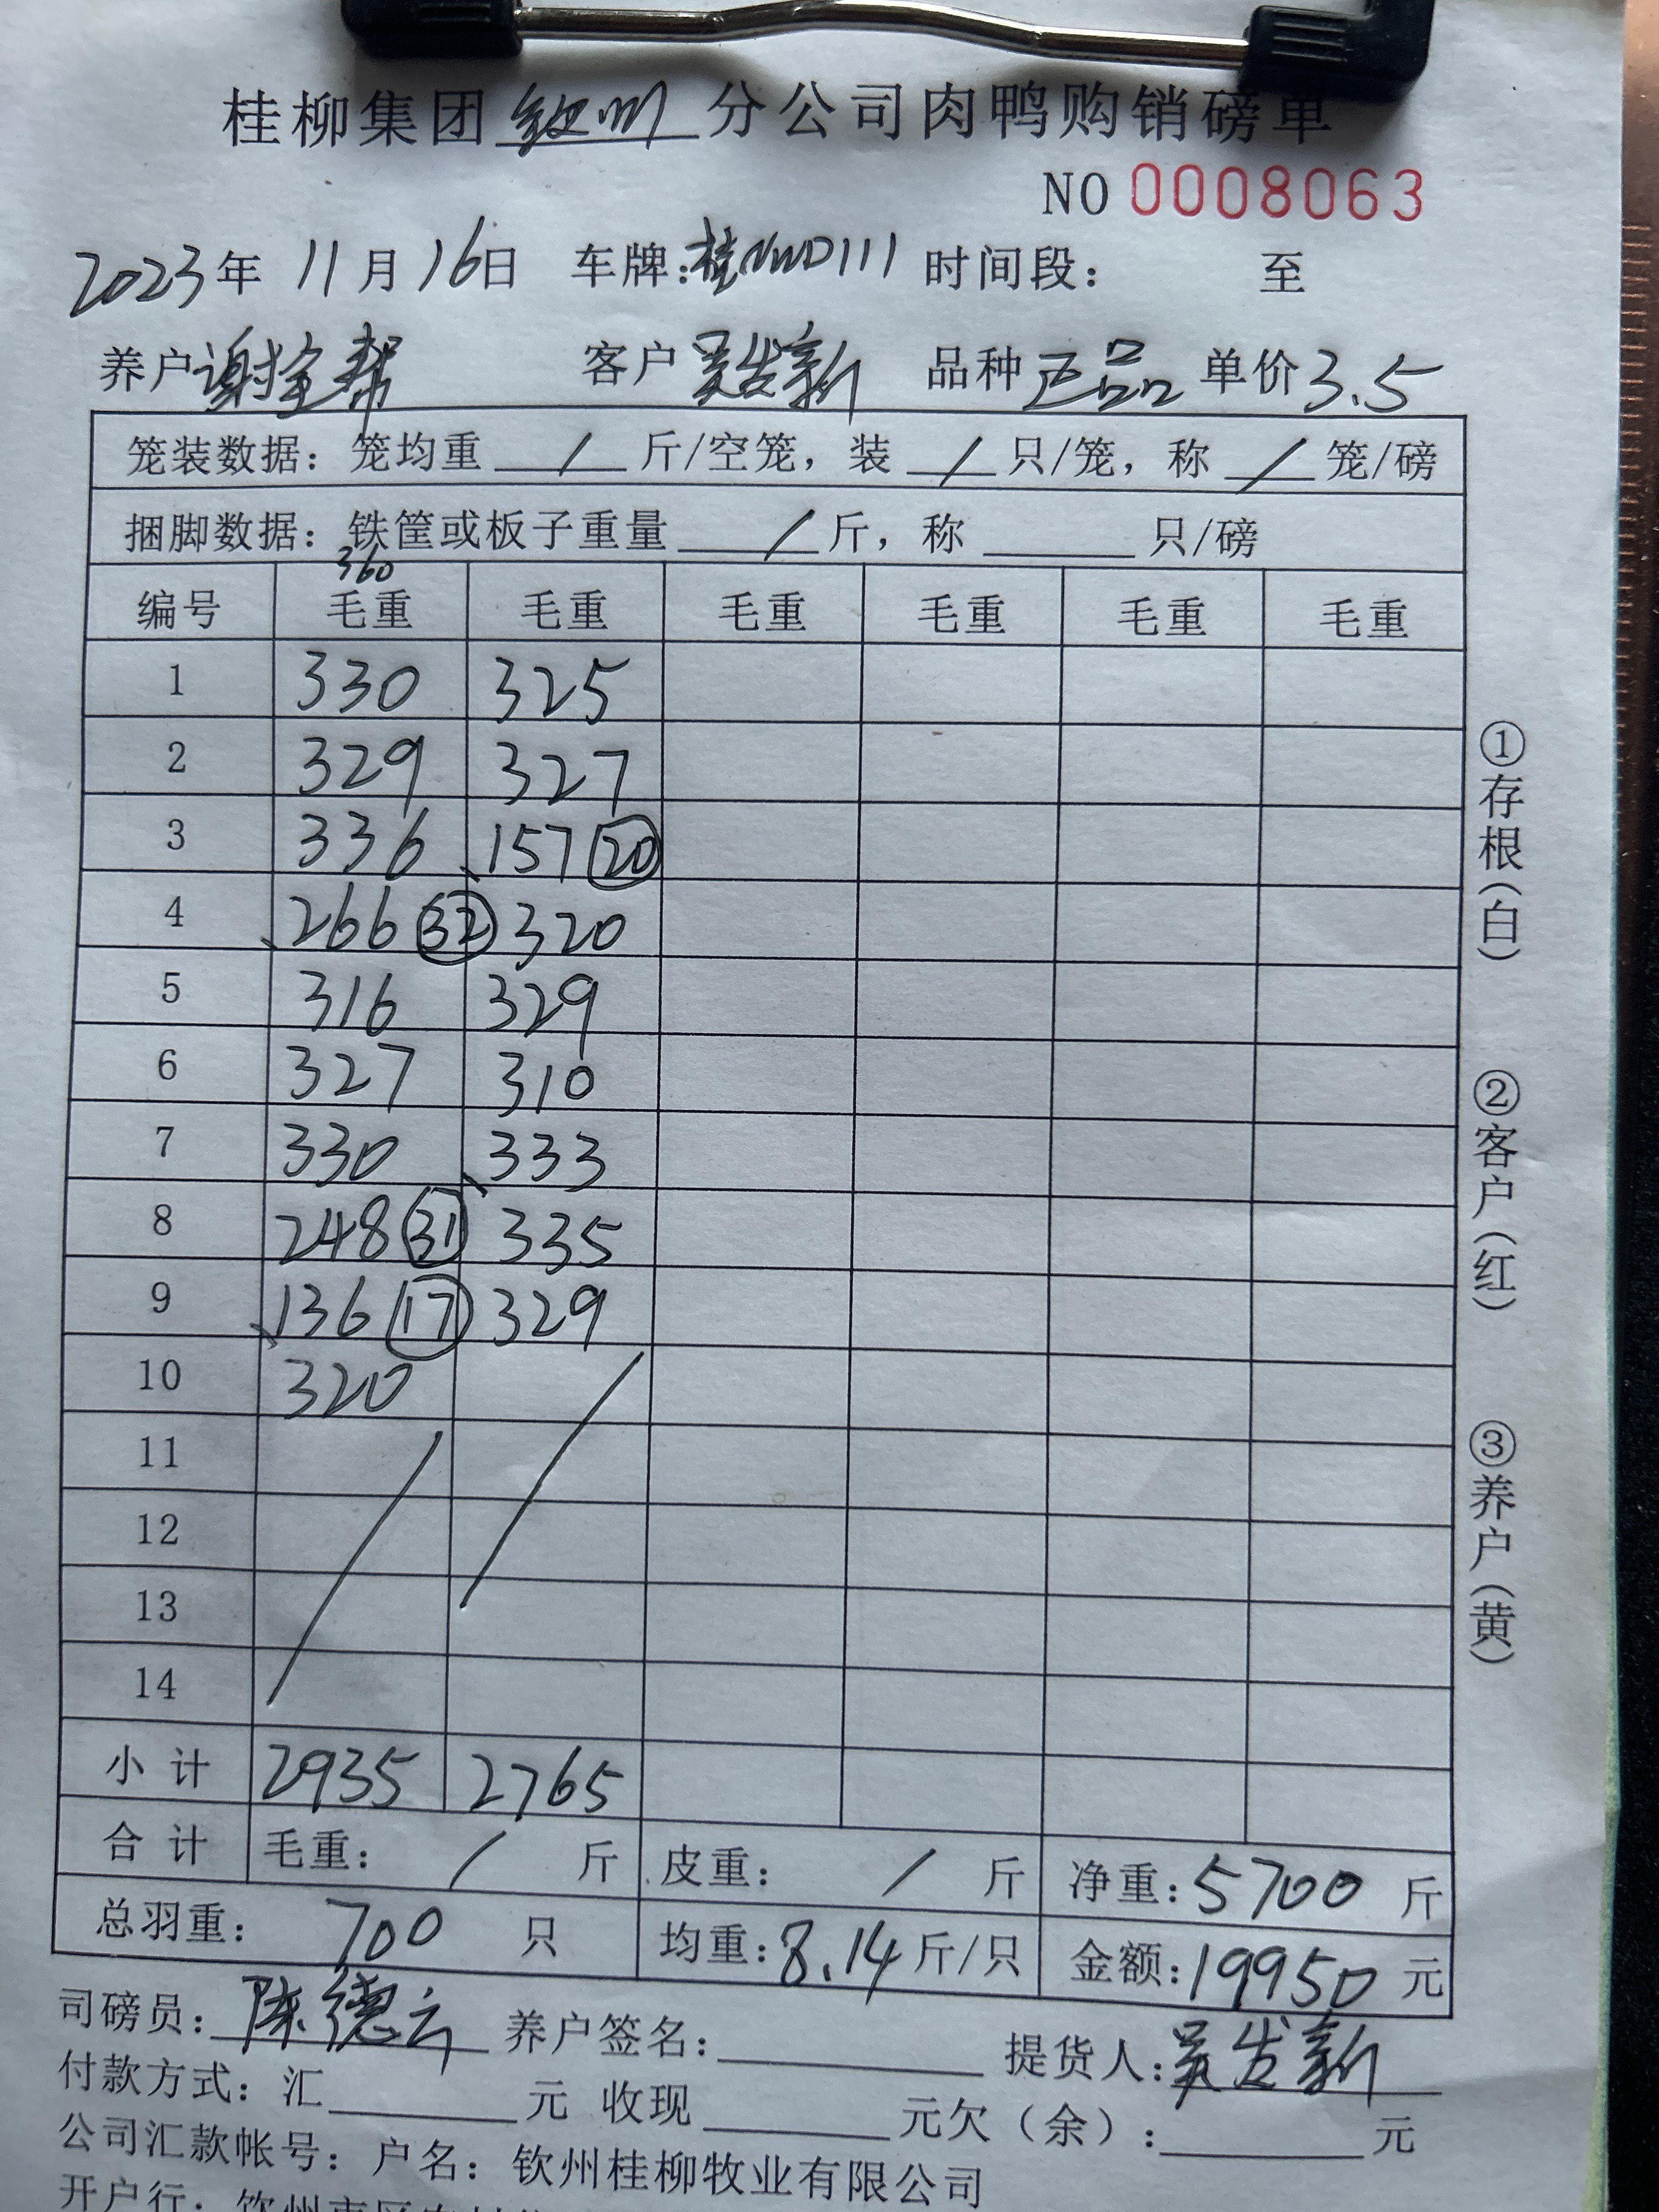 桂柳集团钦州分公司肉鸭购销磅单
NO 0008063
2023年 11月16日 车牌:桂 D111 时间段: 至
养户 谢 帮 客户 吴发新 品种 正品 单价 3.5
笼装数据: 笼均重 / 斤/空笼, 装 / 只/笼, 称 / 笼/磅
捆脚数据: 铁筐或板子重量 / 斤, 称 只/磅
360
编号 毛重 毛重 毛重 毛重 毛重 毛重
1 330 325
2 329 327
3 336 157 20
4 266 32 320
5 316 329
6 327 310
7 330 333
8 248 31 335
9 136 17 329
10 320
11
12
13
14
小计 2935 2765
合计 毛重: / 斤 皮重: / 斤 净重: 5700 斤
总羽重: 700 只 均重: 8.14 斤/只 金额: 19950 元
司磅员: 陈德云 养户签名: 提货人: 吴发新
付款方式: 汇 元 收现 元欠(余): 元
公司汇款帐号: 户名: 钦州桂柳牧业有限公司
开户行: 钦州市区
①存根(白)
②客户(红)
③养户(黄)